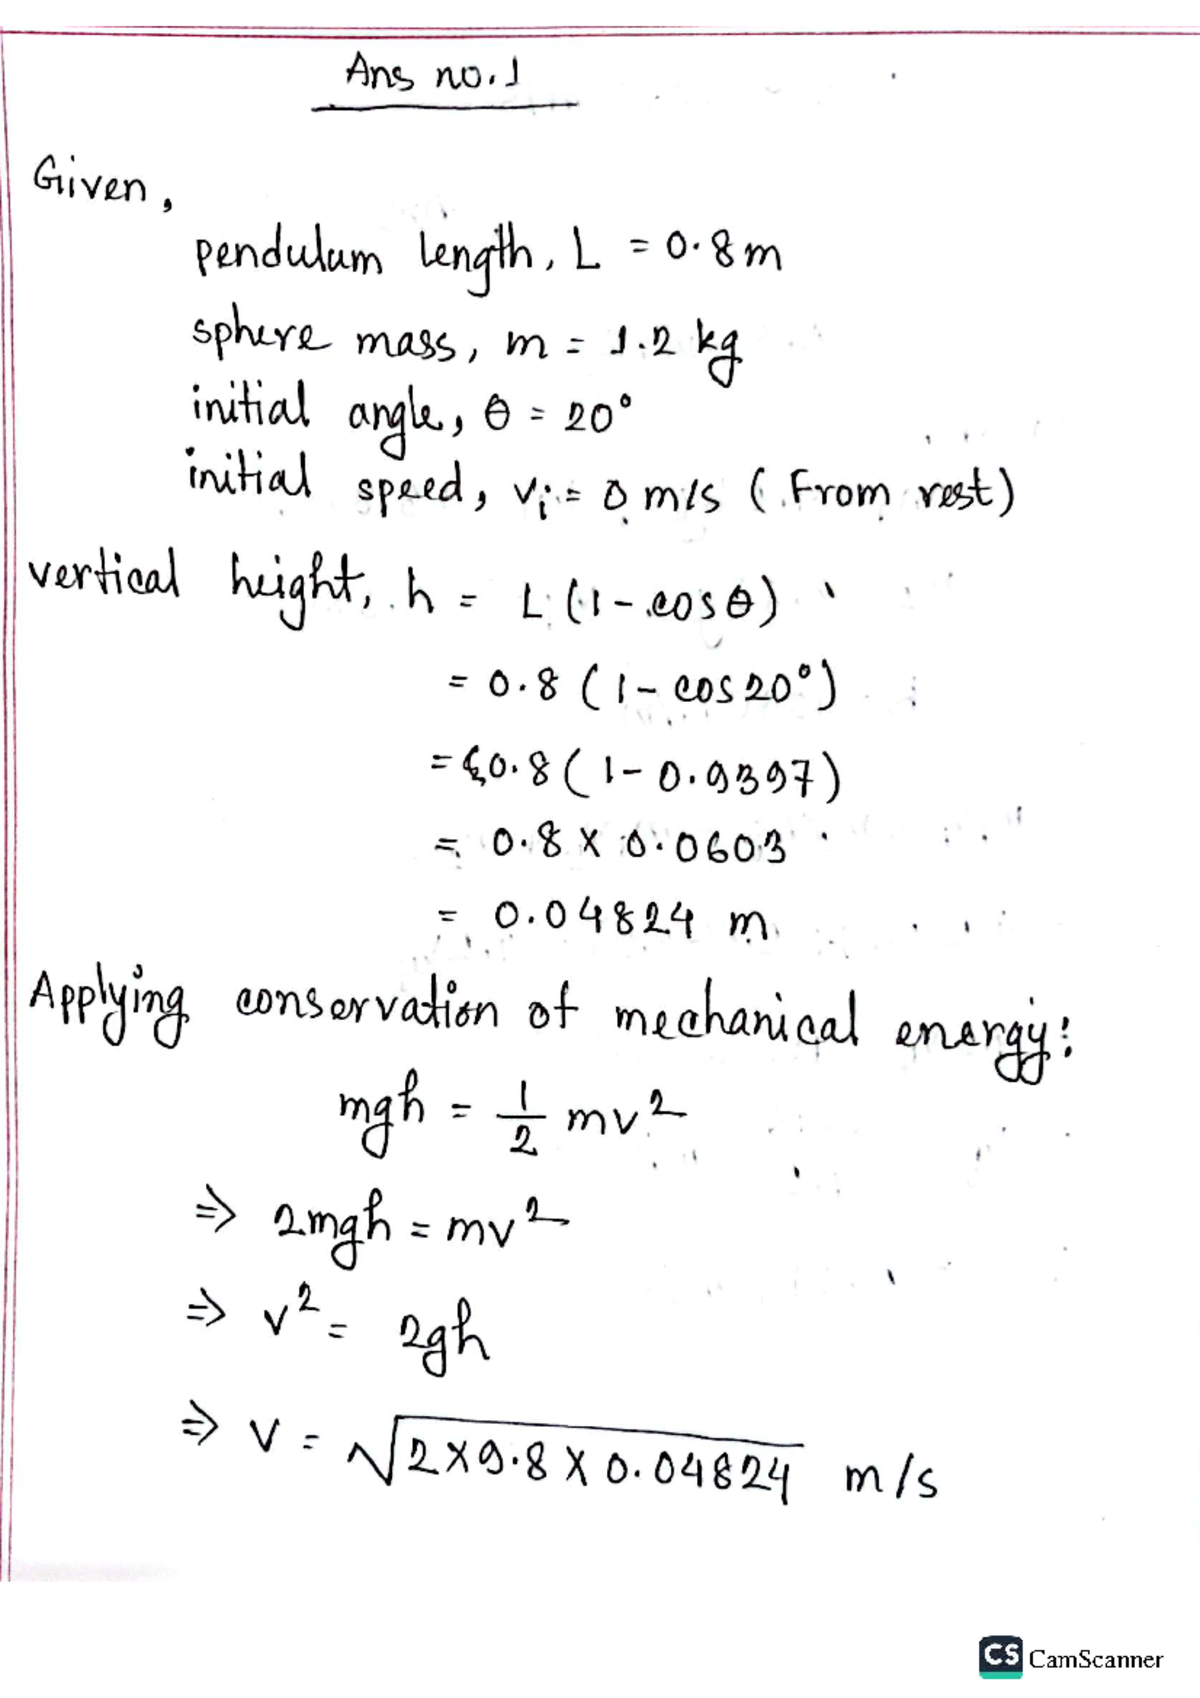 Ans no. 1
Given,
pendulum length, L = 0.8 m
sphere mass, m = 1.2 kg
initial angle, θ = 20°
initial speed, vᵢ = 0 m/s (From rest)
vertical height, h = L (1 - cosθ)
= 0.8 (1 - cos 20°)
= 0.8 (1 - 0.9397)
= 0.8 × 0.0603
= 0.04824 m
Applying conservation of mechanical energy:
mgh = 1/2 mv²
⇒ 2mgh = mv²
⇒ v² = 2gh
⇒ v = √(2×9.8×0.04824) m/s
CS CamScanner